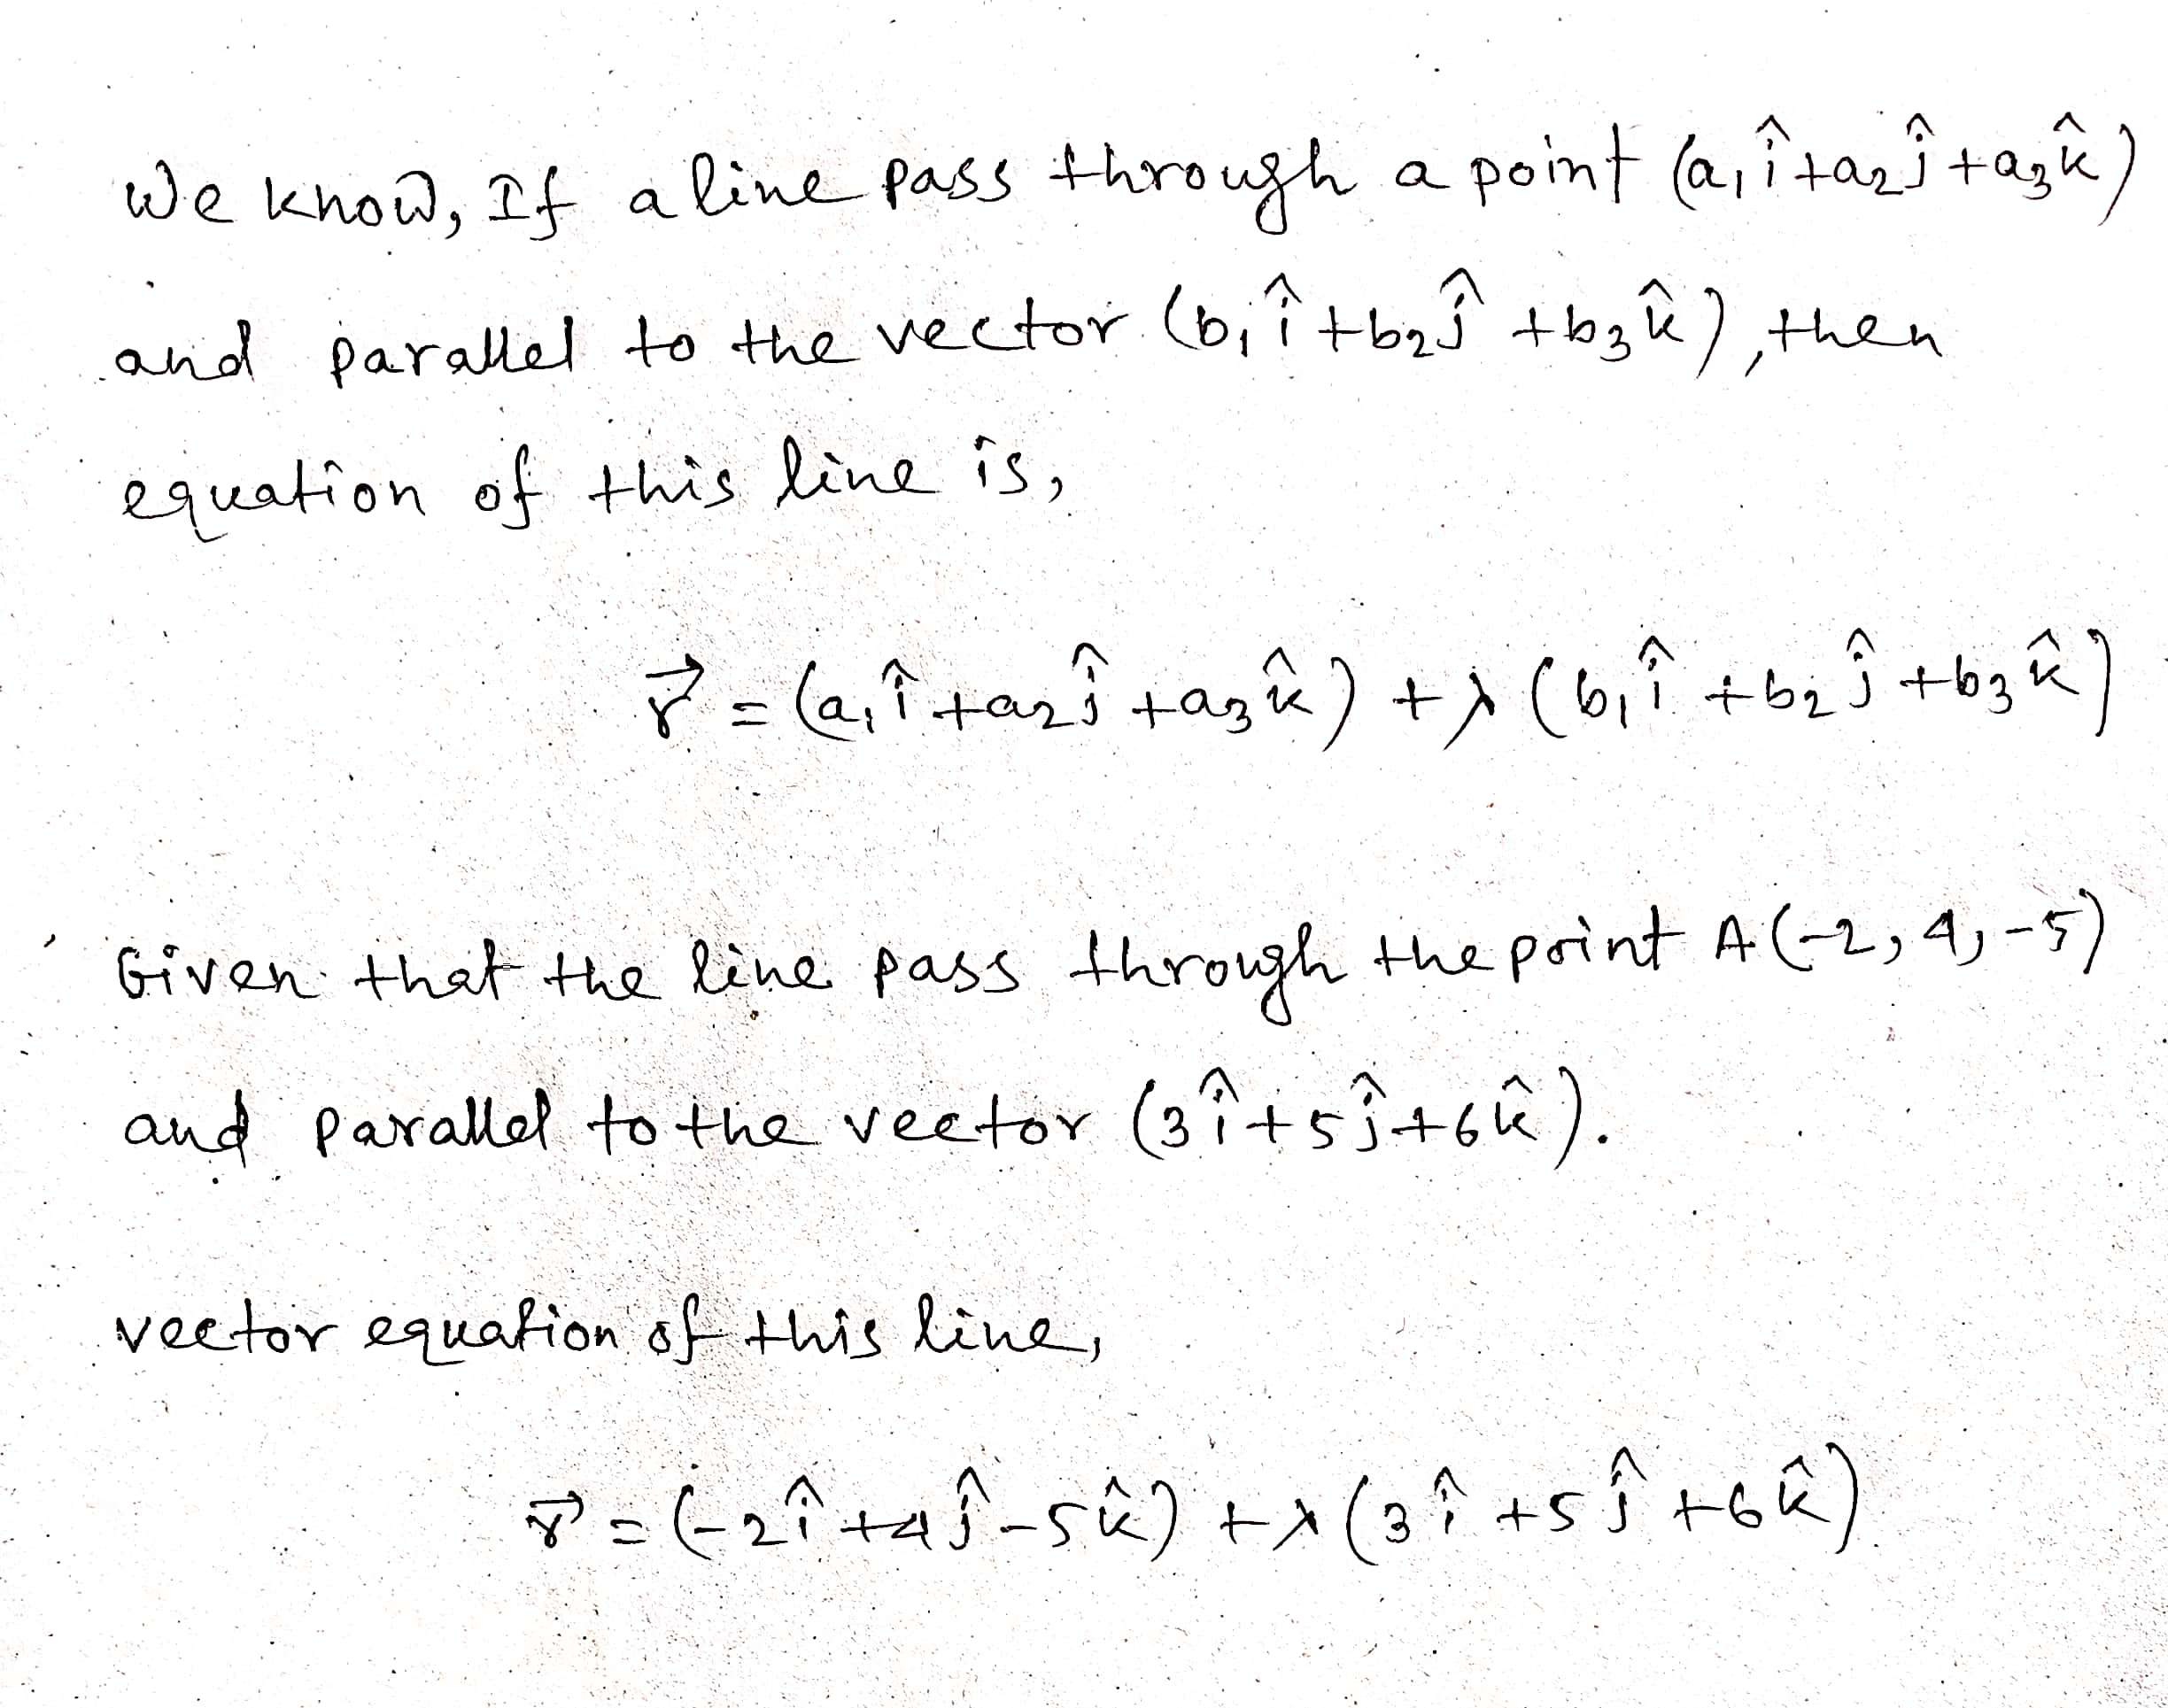 We know, If a line pass through a point (a₁î+a₂ĵ+a₃k̂)
and parallel to the vector (b₁î+b₂ĵ+b₃k̂), then
equation of this line is,
r⃗ = (a₁î+a₂ĵ+a₃k̂) + λ (b₁î+b₂ĵ+b₃k̂)
Given that the line pass through the point A(-2, 4, -5)
and parallel to the vector (3î+5ĵ+6k̂).
vector equation of this line,
r⃗ = (-2î+4ĵ-5k̂) + λ (3î+5ĵ+6k̂)